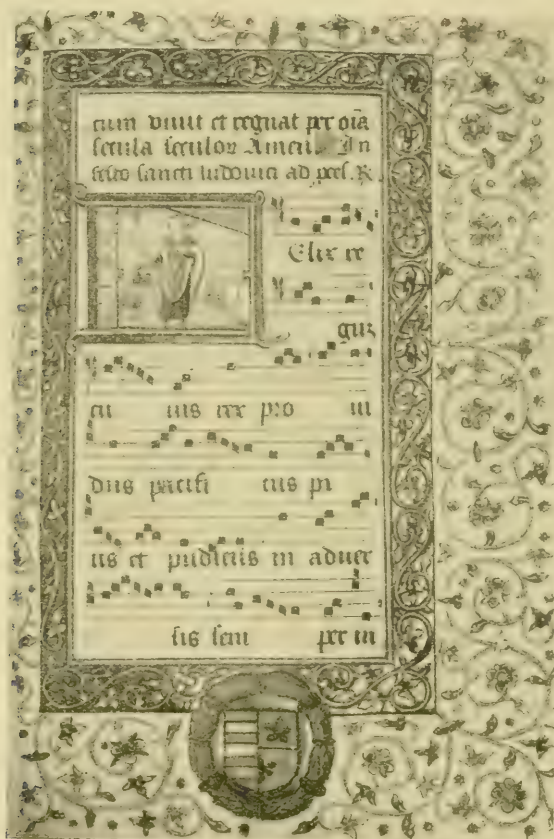 cum viuit et regnat per oīa
secula seculoꝝ Amen. In
festo sancti ludouici ad pces. R.
Elix re
gnū
cu ius rex pro ui
dus pacifi cus pi
us et pudicus in aduer
sis sem per in